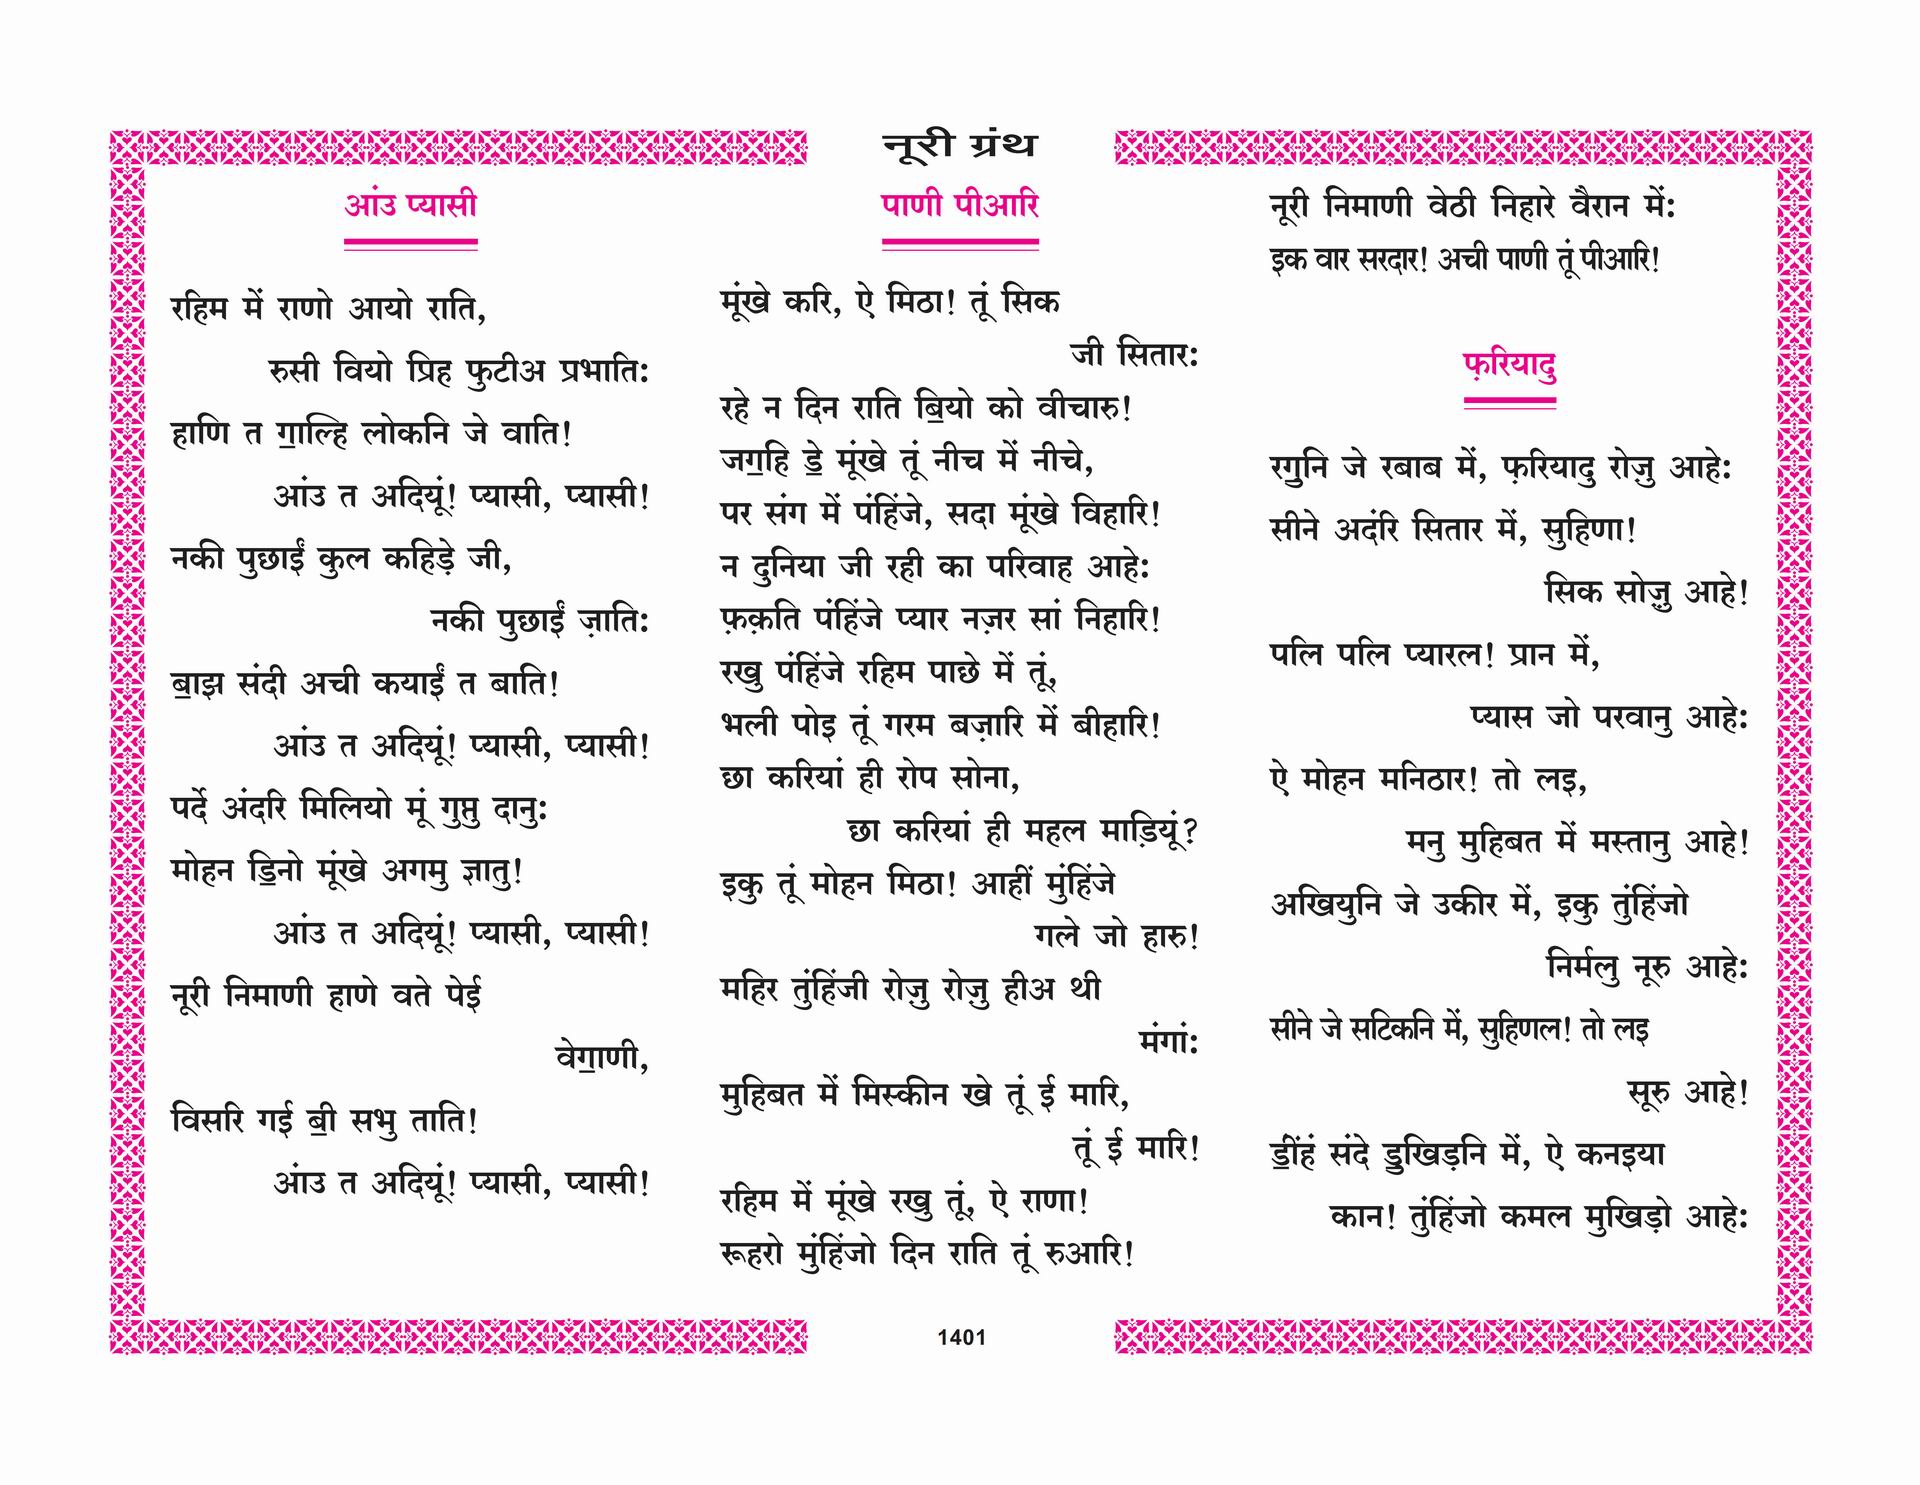 नूरी ग्रंथ
आंउ प्यासी
रहिम में राणो आयो राति,
रुसी वियो प्रिह फुटीअ प्रभाति:
हाणि त ॻाल्हि लोकनि जे वाति!
आंउ त अदियूं! प्यासी, प्यासी!
नकी पुछाईं कुल कहिड़े जी,
नकी पुछाईं ज़ाति:
ॿाझ संदी अची कयाईं त बाति!
आंउ त अदियूं! प्यासी, प्यासी!
पर्दे अंदरि मिलियो मूं गुप्तु दानु:
मोहन ॾिनो मूंखे अगमु ज्ञातु!
आंउ त अदियूं! प्यासी, प्यासी!
नूरी निमाणी हाणे वते पेई
वेॻाणी,
विसरि गई ॿी सभु ताति!
आंउ त अदियूं! प्यासी, प्यासी!
पाणी पीआरि
मूंखे करि, ऐ मिठा! तूं सिक
जी सितार:
रहे न दिन राति ॿियो को वीचारु!
जॻहि ॾे मूंखे तूं नीच में नीचे,
पर संग में पंहिंजे, सदा मूंखे विहारि!
न दुनिया जी रही का परिवाह आहे:
फ़क़ति पंहिंजे प्यार नज़र सां निहारि!
रखु पंहिंजे रहिम पाछे में तूं,
भली पोइ तूं गरम बज़ारि में बीहारि!
छा करियां ही रोप सोना,
छा करियां ही महल माड़ियूं?
इकु तूं मोहन मिठा! आहीं मुंहिंजे
गले जो हारु!
महिर तुंहिंजी रोज़ु रोज़ु हीअ थी
मंगां:
मुहिबत में मिस्कीन खे तूं ई मारि,
तूं ई मारि!
रहिम में मूंखे रखु तूं, ऐ राणा!
रूहरो मुंहिंजो दिन राति तूं रुआरि!
नूरी निमाणी वेठी निहारे वैरान में:
इक वार सरदार! अची पाणी तूं पीआरि!
फ़रियादु
रॻुनि जे रबाब में, फ़रियादु रोज़ु आहे:
सीने अदंरि सितार में, सुहिणा!
सिक सोज़ु आहे!
पलि पलि प्यारल! प्रान में,
प्यास जो परवानु आहे:
ऐ मोहन मनिठार! तो लइ,
मनु मुहिबत में मस्तानु आहे!
अखियुनि जे उकीर में, इकु तुंहिंजो
निर्मलु नूरु आहे:
सीने जे सटिकनि में, सुहिणल! तो लइ
सूरु आहे!
ॾींहं संदे ॾुखिड़नि में, ऐ कनइया
कान! तुंहिंजो कमल मुखिड़ो आहे:
1401